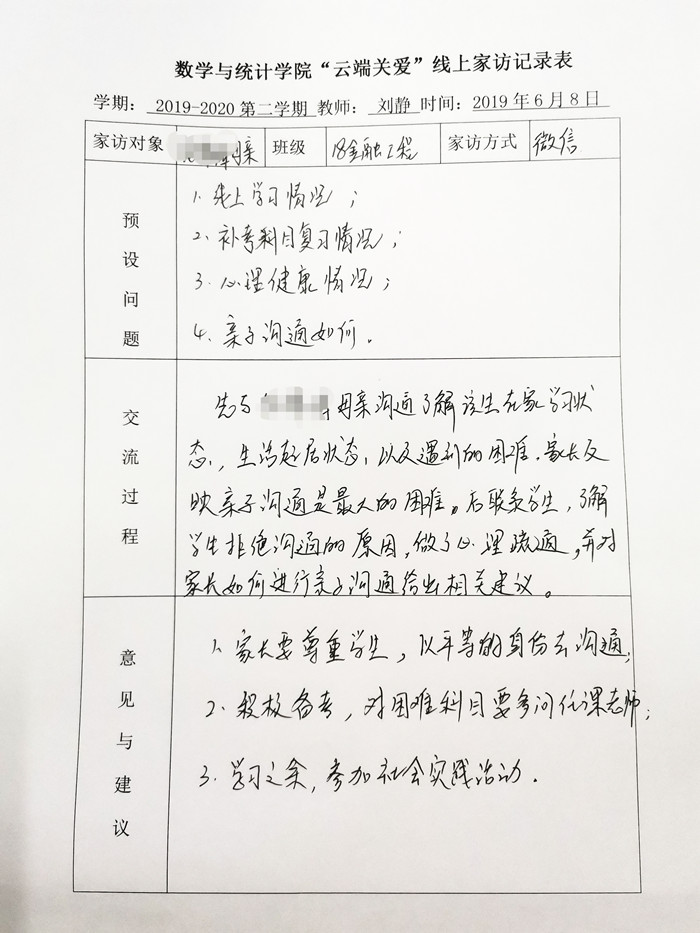 数学与统计学院“云端关爱”线上家访记录表
学期： 2019-2020 第二学期 教师： 刘静 时间：2019 年 6 月 8 日
家访对象 母亲 班级 18金融工程 家访方式 微信
预设问题
1. 线上学习情况；
2. 补考科目复习情况；
3. 心理健康情况；
4. 亲子沟通如何。
交流过程
先与 母亲沟通了解该生在家学习状
态，生活起居状态，以及遇到的困难。家长反
映亲子沟通是最大的困难。后联系学生，了解
学生拒绝沟通的原因，做了心理疏通，并对
家长如何进行亲子沟通给出相关建议。
意见与建议
1. 家长要尊重学生，以平等的身份去沟通；
2. 积极备考，对困难科目要多问任课老师；
3. 学习之余，参加社会实践活动.